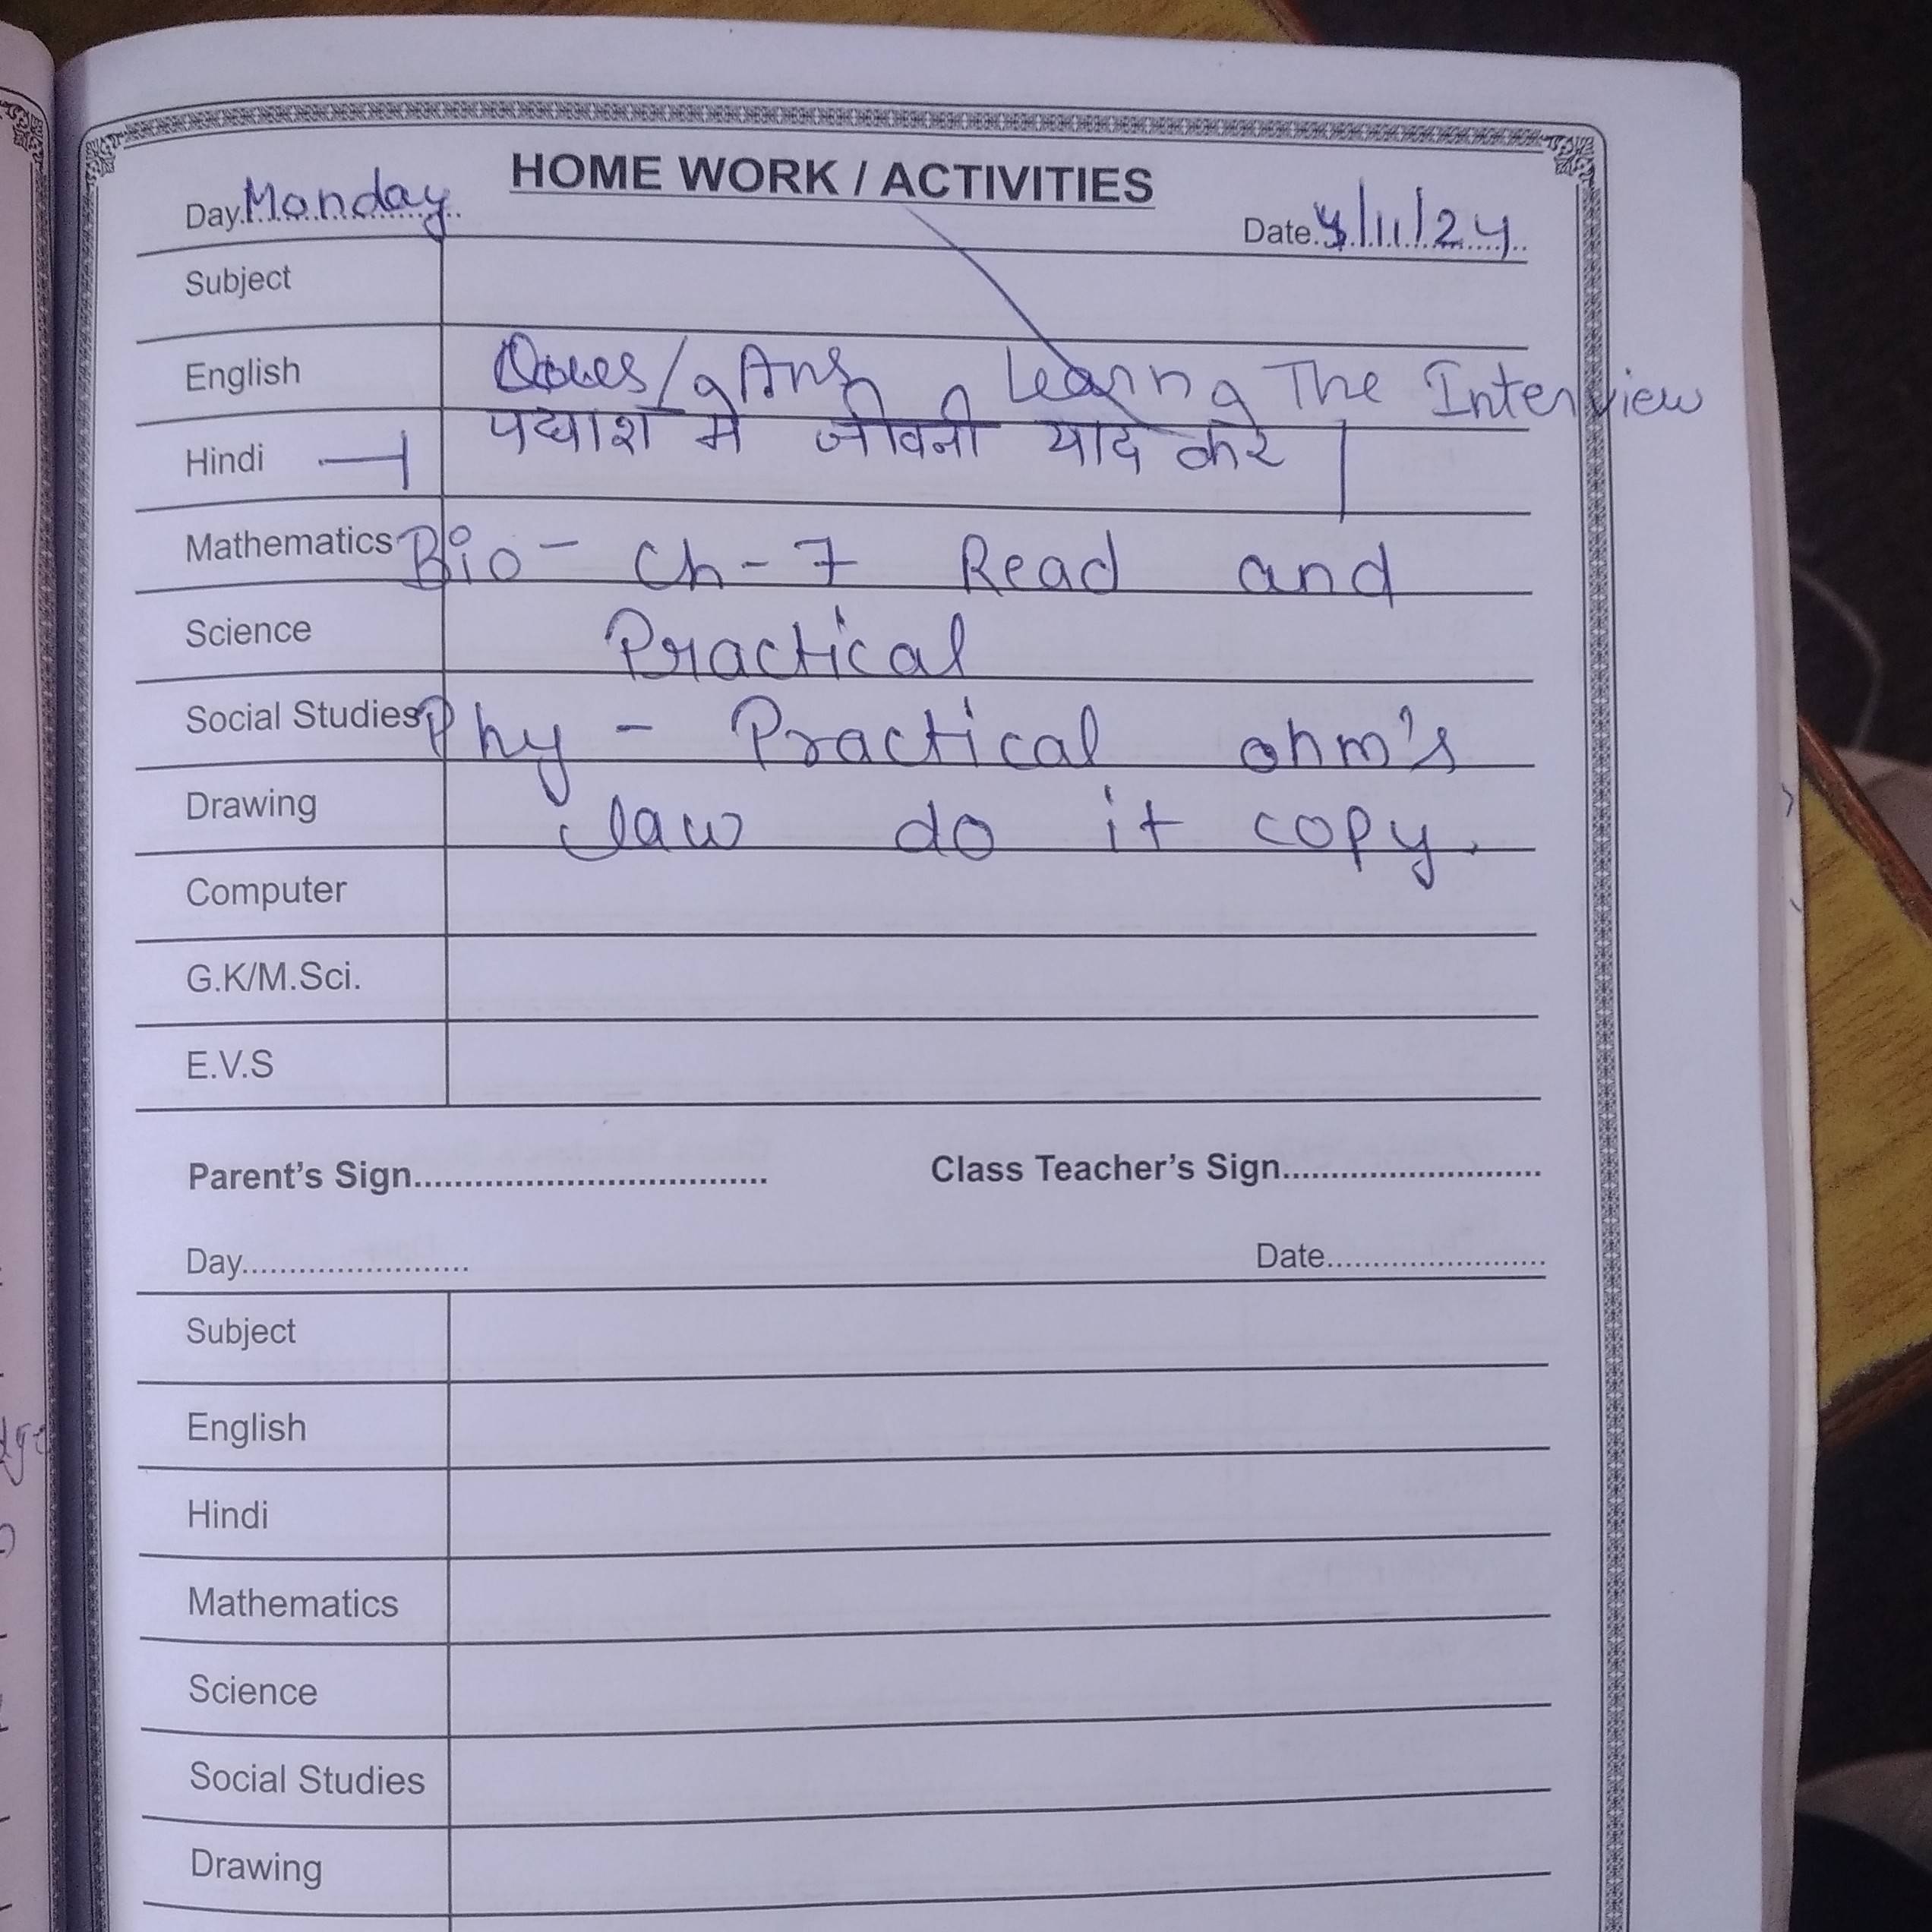 HOME WORK / ACTIVITIES
Day. Monday Date. 4/11/24
Subject
English Ques/Ans Learn The Interview
Hindi पद्याश मे जीवनी याद करे |
Mathematics Bio - Ch - 7 Read and
Science Practical
Social Studies Phy - Practical ohm's
Drawing law do it copy.
Computer
G.K/M.Sci.
E.V.S
Parent's Sign................................... Class Teacher's Sign..........................
Day........................ Date........................
Subject
English
Hindi
Mathematics
Science
Social Studies
Drawing